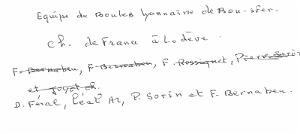 Equipe de Boules Lyonnaise de Bou-sfer.
Ch. de France à Lodève.
F. Bernaben, F. Bernaben, F. Rossignet, Pierre Sorin
et
D. Féral, P. Sorin et F. Bernaben.